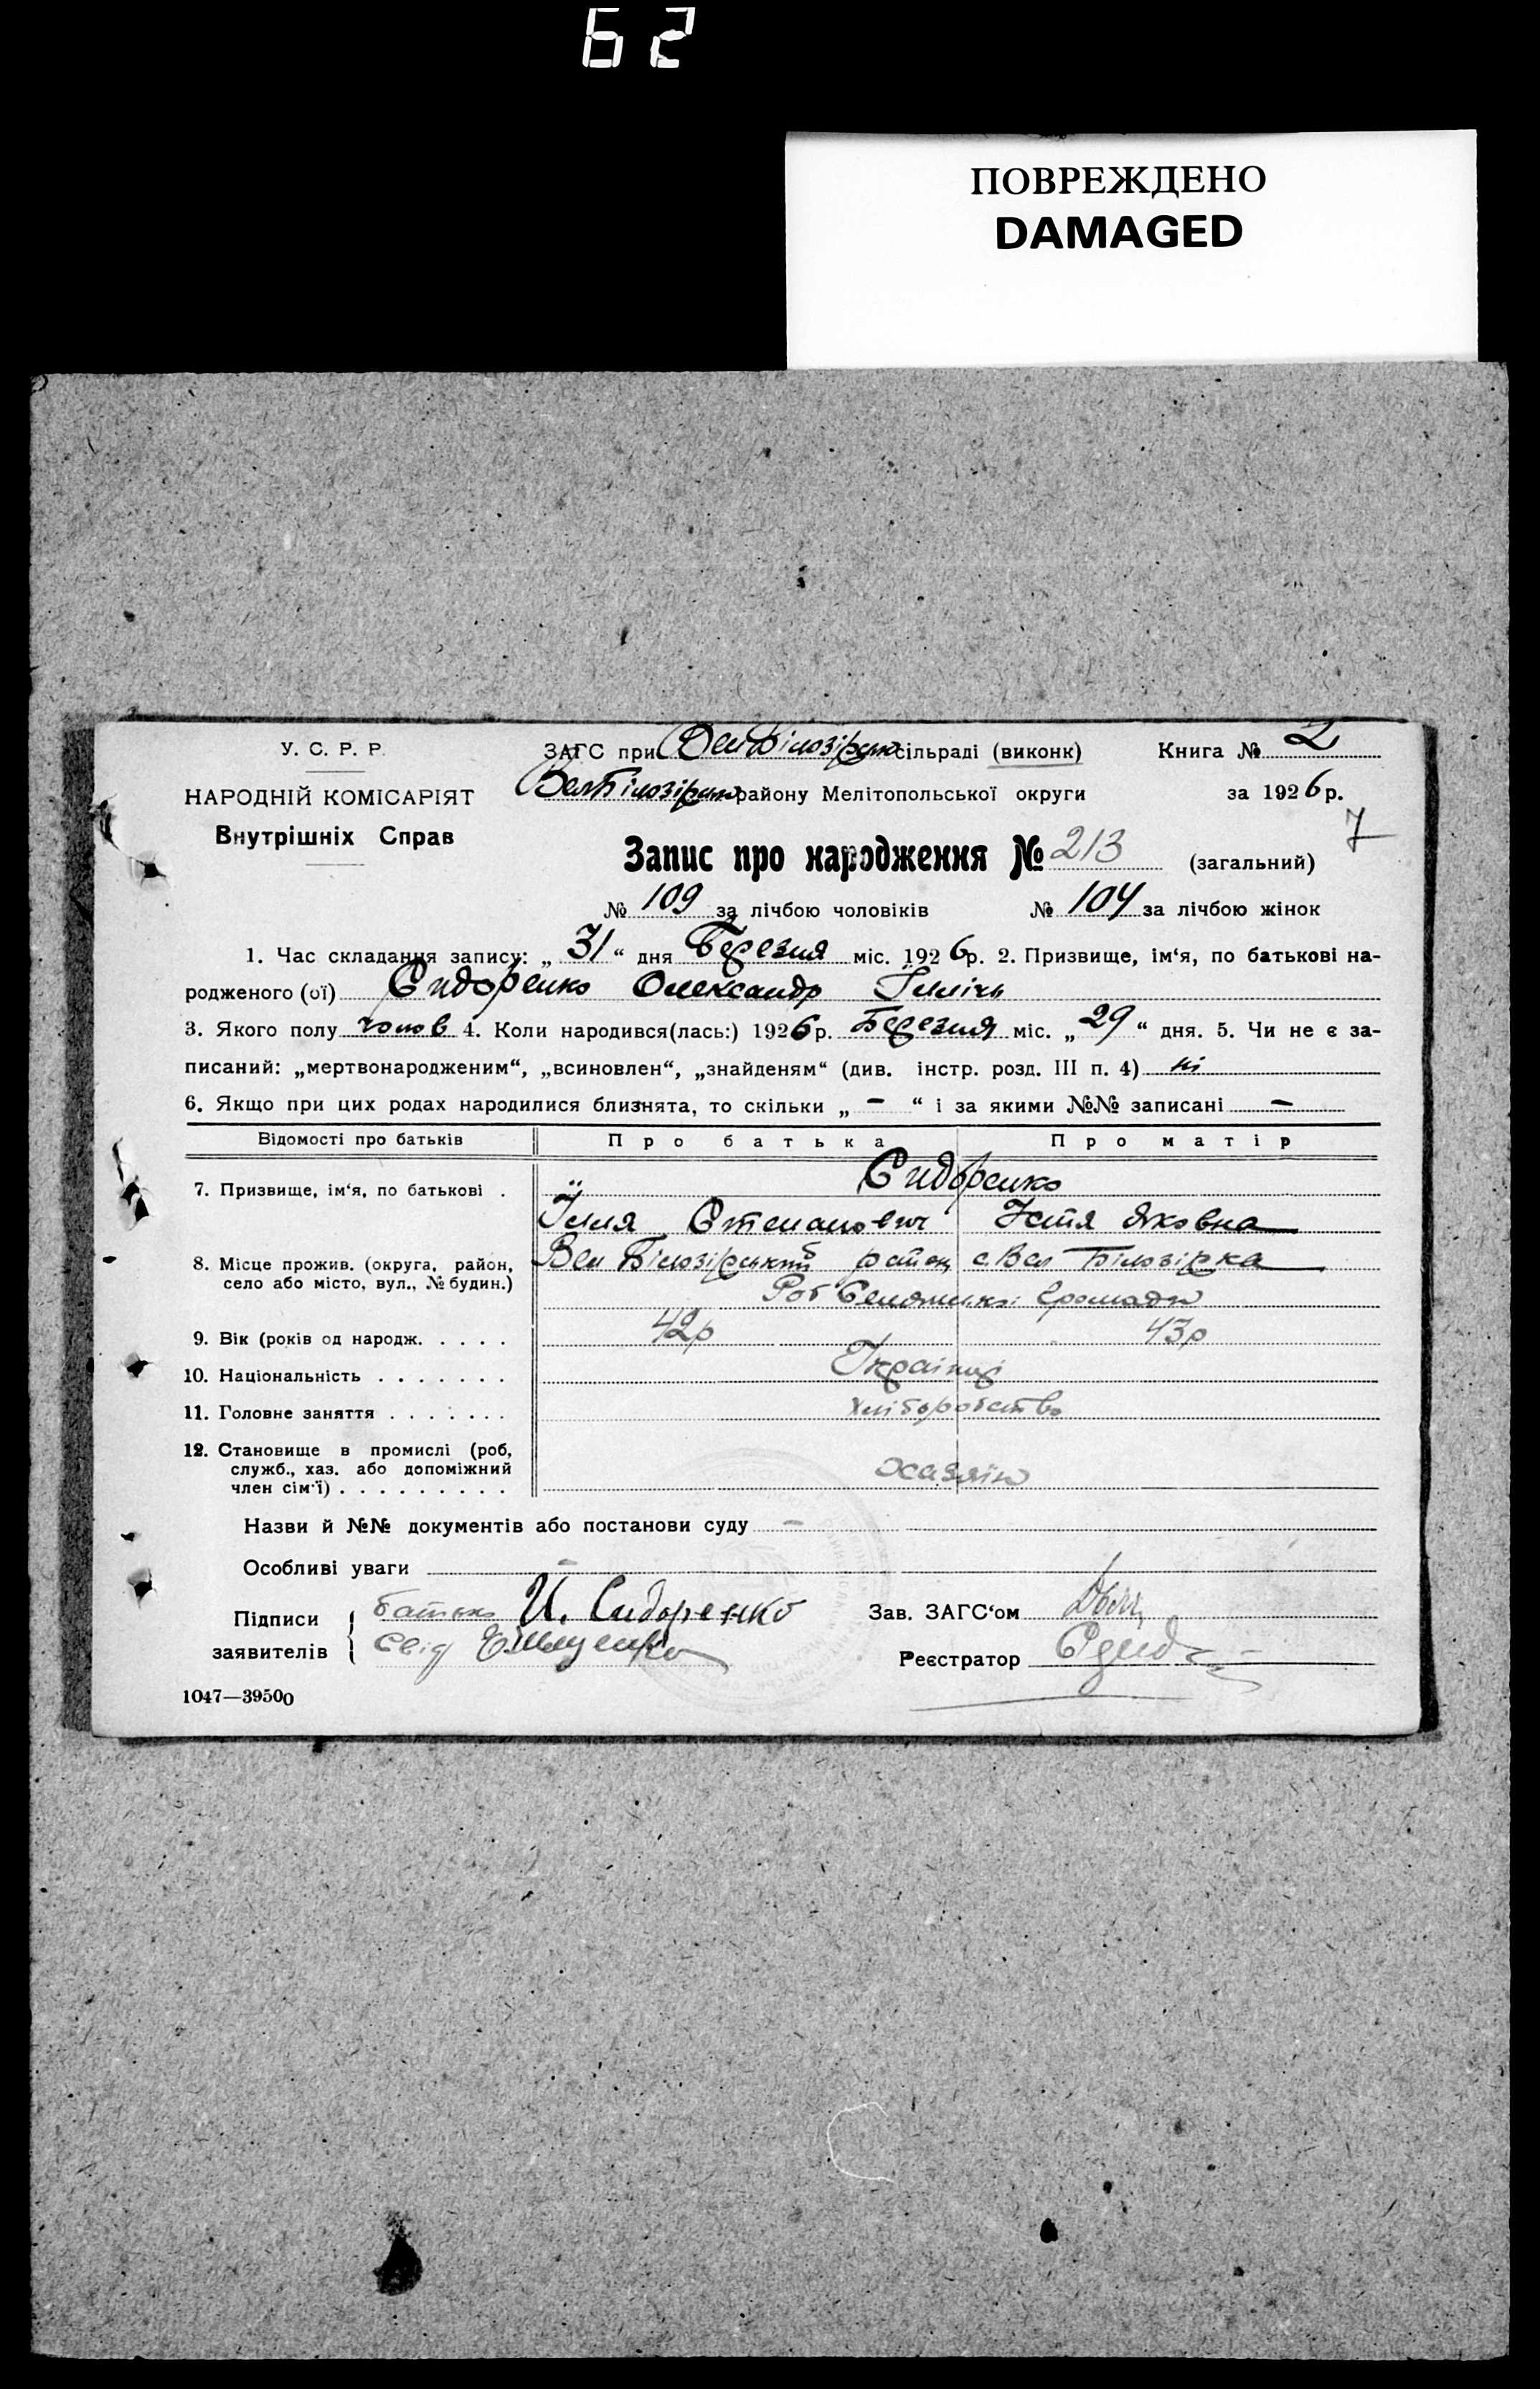 62
ПОВРЕЖДЕНО
DAMAGED
У. С. Р. Р.
НАРОДНІЙ КОМІСАРІЯТ
Внутрішніх Справ
ЗАГС при ВелБілозірськ сільраді (виконк)
ВелБілозірськ району Мелітопольської округи
Книга № 2
за 1926 р.
7
Запис про народження № 213 (загальний)
№ 109 за лічбою чоловіків № 104 за лічбою жінок
1. Час складання запису: „ 31 “ дня Березня міс. 1926 р. 2. Призвище, ім‘я, по батькові на-
родженого (ої) Сидоренко Олександр Ілліч
3. Якого полу чолов 4. Коли народився(лась:) 1926 р. Березня міс. „ 29 “ дня. 5. Чи не є за-
писаний: „мертвонародженим“, „всиновлен“, „знайденям“ (див. інстр. розд. III п. 4) ні
6. Якщо при цих родах народилися близнята, то скільки „ - “ і за якими №№ записані -
Відомості про батьків Про батька Про матір
7. Призвище, ім‘я, по батькові . Сидоренко
Ілля Степанович Устя Яковна
8. Місце прожив. (округа, район,
село або місто, вул., № будин.)
Вел Білозірський район с. Вел Білозірка
Громади
9. Вік (років од народж. . . . . 42р 43р
10. Національність . . . . . . . Українці
11. Головне заняття . . . . . . . Хліборобство
12. Становище в промислі (роб,
служб., хаз. або допоміжний
член сім‘ї) . . . . . . . . . хазяїн
Назви й №№ документів або постанови суду -
Особливі уваги -
Підписи заявителів
батько И. Сидоренко
Свід
Зав. ЗАГС‘ом
Реєстратор
1047—39500